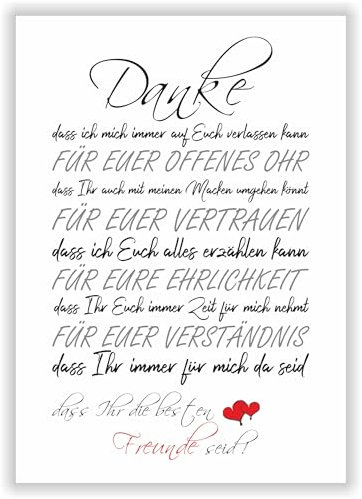 Danke
dass ich mich immer auf Euch verlassen kann
FÜR EUER OFFENES OHR
dass Ihr auch mit meinen Macken umgehen könnt
FÜR EUER VERTRAUEN
dass ich Euch alles erzählen kann
FÜR EURE EHRLICHKEIT
dass Ihr Euch immer Zeit für mich nehmt
FÜR EUER VERSTÄNDNIS
dass Ihr immer für mich da seid
dass Ihr die besten
Freunde seid!